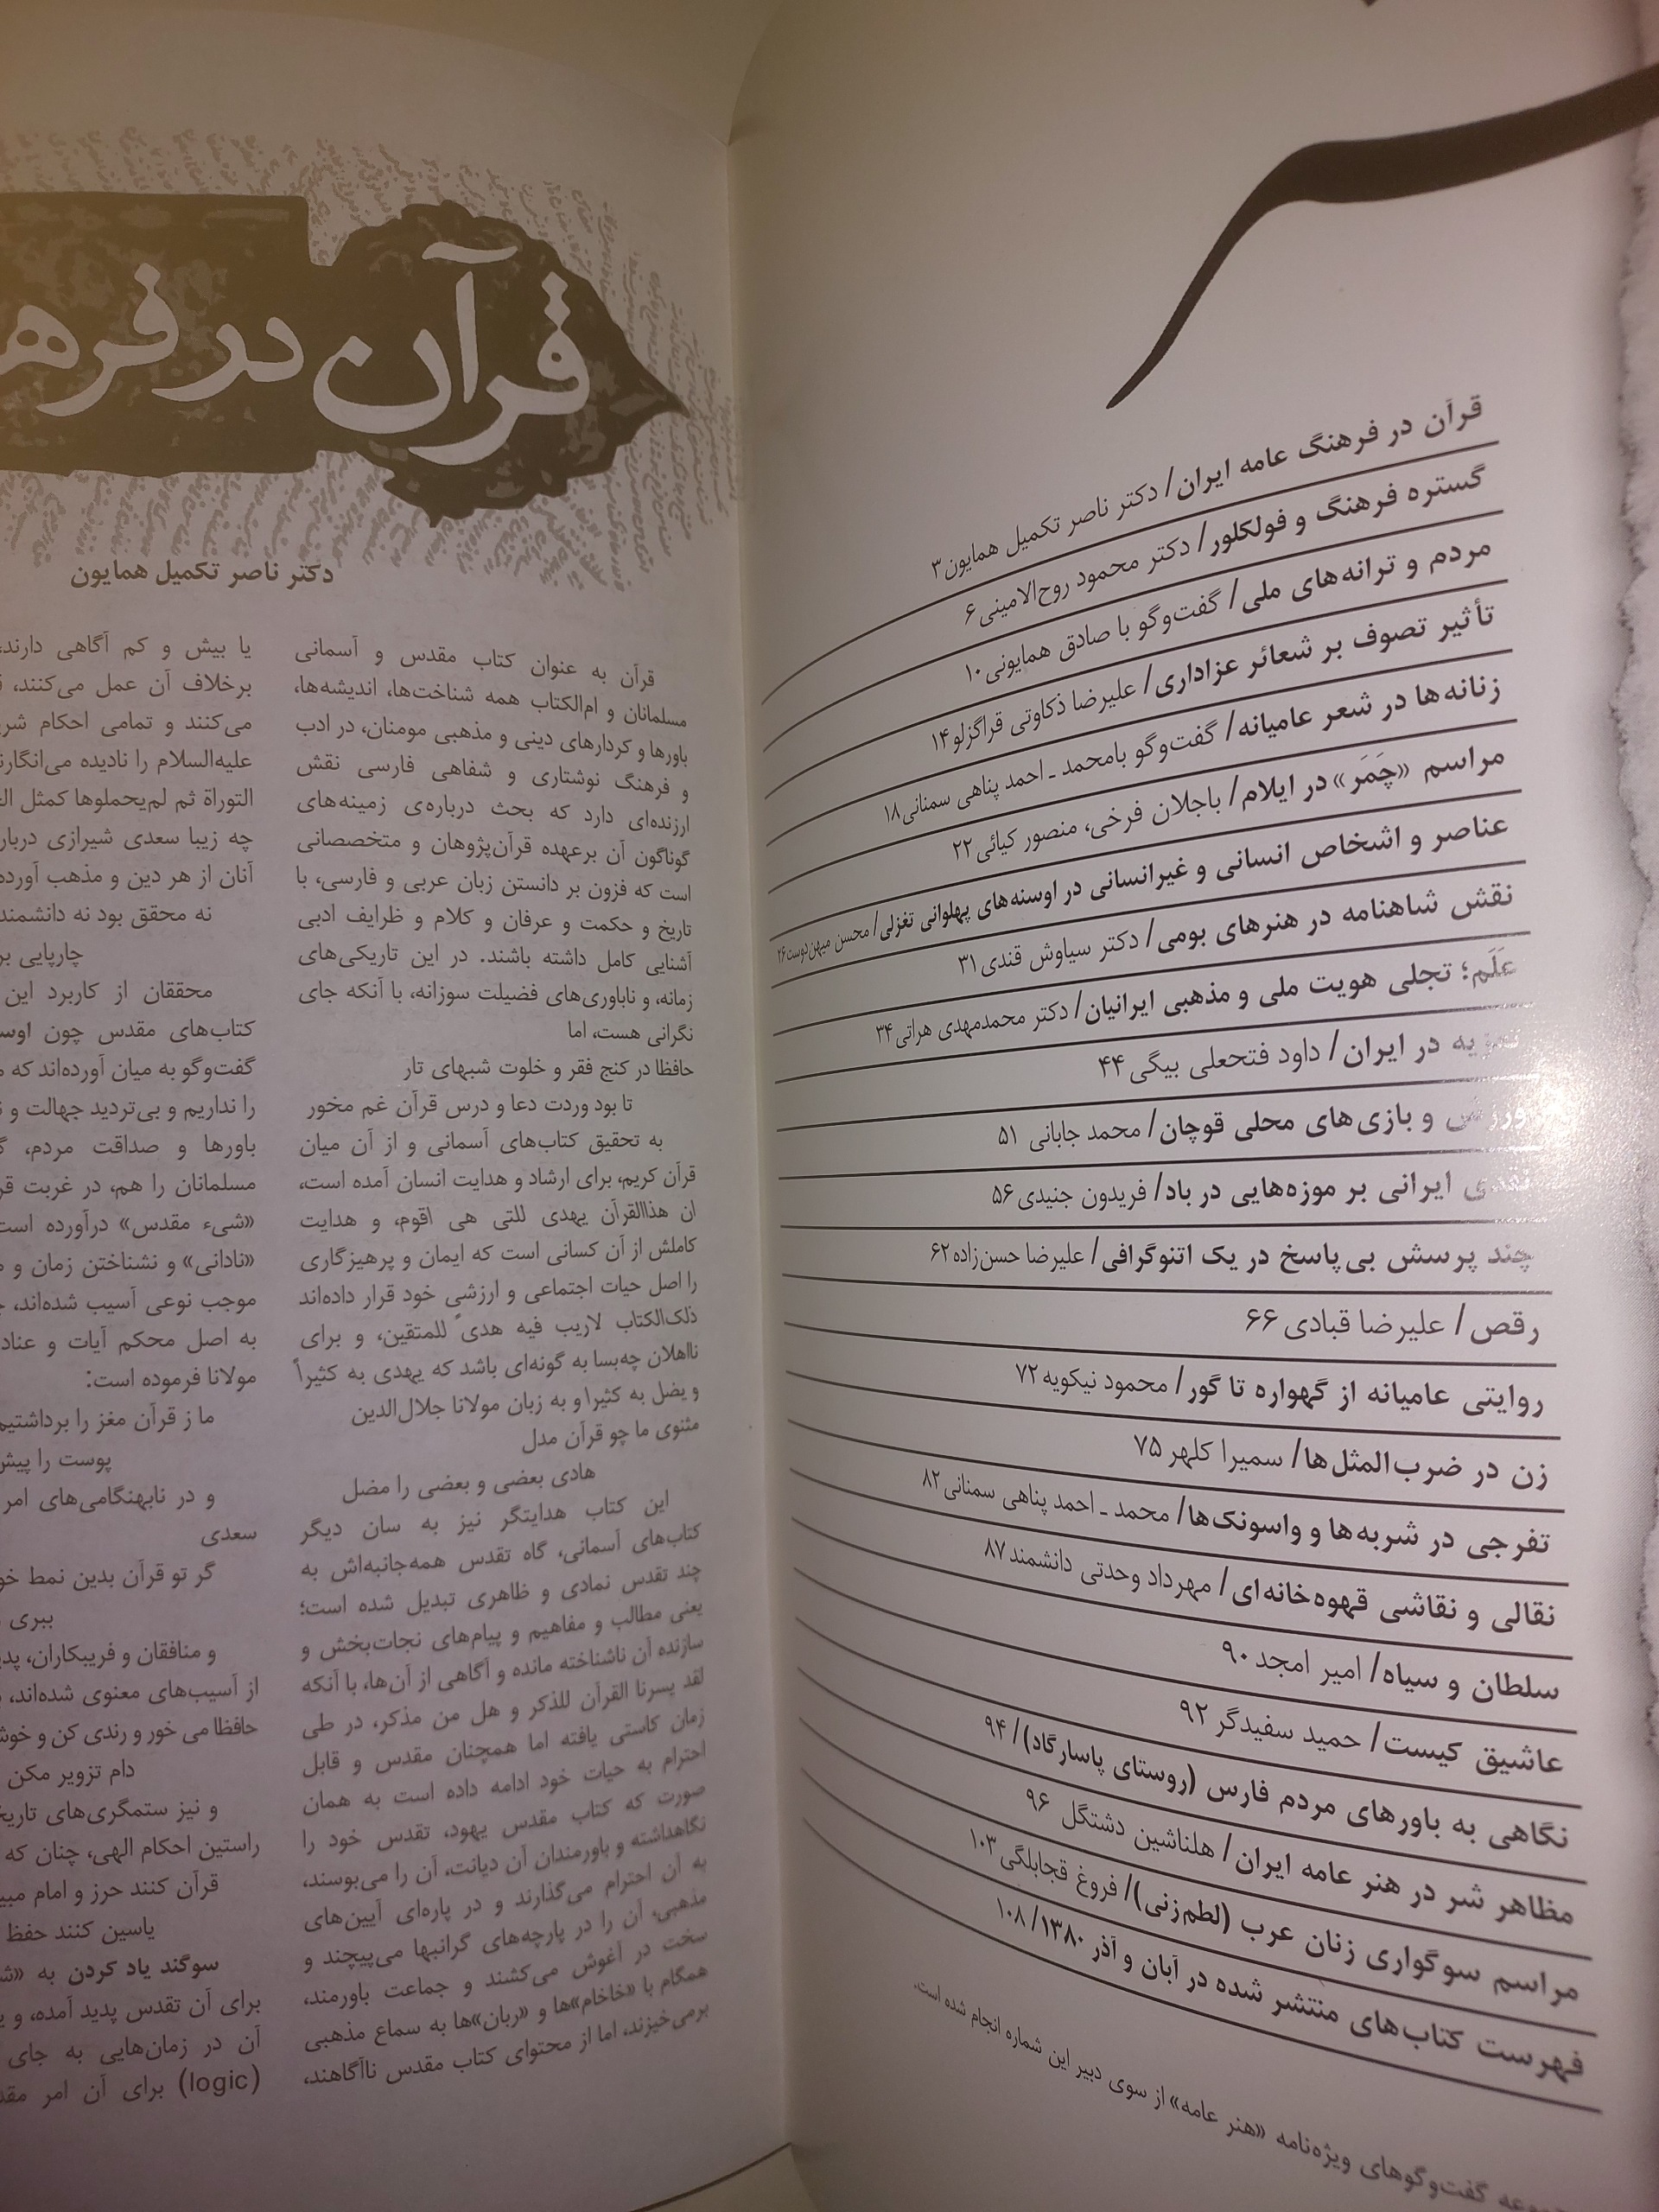 قرآن در فرهنگ عامه ایران/ دکتر ناصر تکمیل همایون ۳
گستره فرهنگ و فولکلور/ دکتر محمود روح‌الامینی ۶
مردم و ترانه‌های ملی/ گفت‌وگو با صادق همایونی ۱۰
تأثیر تصوف بر شعائر عزاداری/ علیرضا ذکاوتی قراگزلو ۱۴
زنانه‌ها در شعر عامیانه/ گفت‌وگو بامحمد ـ احمد پناهی سمنانی ۱۸
مراسم «چَمَر» در ایلام/ باجلان فرخی، منصور کیائی ۲۲
عناصر و اشخاص انسانی و غیرانسانی در اوسنه‌های پهلوانی تغزلی/ محسن میهن‌دوست ۲۶
نقش شاهنامه در هنرهای بومی/ دکتر سیاوش قندی ۳۱
عَلَم؛ تجلی هویت ملی و مذهبی ایرانیان/ دکتر محمدمهدی هراتی ۳۴
تعزیه در ایران/ داود فتحعلی بیگی ۴۴
ورزش و بازی‌های محلی قوچان/ محمد جابانی ۵۱
ایرانی بر موزه‌هایی در باد/ فریدون جنیدی ۵۶
چند پرسش بی‌پاسخ در یک اتنوگرافی/ علیرضا حسن‌زاده ۶۲
رقص/ علیرضا قبادی ۶۶
روایتی عامیانه از گهواره تا گور/ محمود نیکویه ۷۲
زن در ضرب‌المثل‌ها/ سمیرا کلهر ۷۵
تفرجی در شربه‌ها و واسونک‌ها/ محمد ـ احمد پناهی سمنانی ۸۲
نقالی و نقاشی قهوه‌خانه‌ای/ مهرداد وحدتی دانشمند ۸۷
سلطان و سیاه/ امیر امجد ۹۰
عاشیق کیست/ حمید سفیدگر ۹۲
نگاهی به باورهای مردم فارس (روستای پاسارگاد)/ ۹۴
مظاهر شر در هنر عامه ایران/ هلناشین دشتگل ۹۶
مراسم سوگواری زنان عرب (لطم‌زنی)/ فروغ قجابلگی ۱۰۳
فهرست کتاب‌های منتشر شده در آبان و آذر ۱۳۸۰/ ۱۰۸
گفت‌وگوهای ویژه‌نامه «هنر عامه» از سوی دبیر این شماره انجام شده است.
قرآن در فرهـ
دکتر ناصر تکمیل همایون
قرآن به عنوان کتاب مقدس و آسمانی
مسلمانان و ام‌الکتاب همه شناخت‌ها، اندیشه‌ها،
باورها و کردارهای دینی و مذهبی مومنان، در ادب
و فرهنگ نوشتاری و شفاهی فارسی نقش
ارزنده‌ای دارد که بحث درباره‌ی زمینه‌های
گوناگون آن برعهده قرآن‌پژوهان و متخصصانی
است که فزون بر دانستن زبان عربی و فارسی، با
تاریخ و حکمت و عرفان و کلام و ظرایف ادبی
آشنایی کامل داشته باشند. در این تاریکی‌های
زمانه، و ناباوری‌های فضیلت سوزانه، با آنکه جای
نگرانی هست، اما
حافظا در کنج فقر و خلوت شبهای تار
تا بود وردت دعا و درس قرآن غم مخور
به تحقیق کتاب‌های آسمانی و از آن میان
قرآن کریم، برای ارشاد و هدایت انسان آمده است،
ان هذاالقرآن یهدی للتی هی اقوم، و هدایت
کاملش از آن کسانی است که ایمان و پرهیزگاری
را اصل حیات اجتماعی و ارزشی خود قرار داده‌اند
ذلک‌الکتاب لاریب فیه هدیً للمتقین، و برای
نااهلان چه‌بسا به گونه‌ای باشد که یهدی به کثیراً
و یضل به کثیرا و به زبان مولانا جلال‌الدین
مثنوی ما چو قرآن مدل
هادی بعضی و بعضی را مضل
این کتاب هدایتگر نیز به سان دیگر
کتاب‌های آسمانی، گاه تقدس همه‌جانبه‌اش به
چند تقدس نمادی و ظاهری تبدیل شده است؛
یعنی مطالب و مفاهیم و پیام‌های نجات‌بخش و
سازنده آن ناشناخته مانده و آگاهی از آن‌ها، با آنکه
لقد یسرنا القرآن للذکر و هل من مذکر، در طی
زمان کاستی یافته اما همچنان مقدس و قابل
احترام به حیات خود ادامه داده است به همان
صورت که کتاب مقدس یهود، تقدس خود را
نگاهداشته و باورمندان آن دیانت، آن را می‌بوسند،
به آن احترام می‌گذارند و در پاره‌ای آیین‌های
مذهبی، آن را در پارچه‌های گرانبها می‌پیچند و
سخت در آغوش می‌کشند و جماعت باورمند،
همگام با «خاخام»ها و «ربان»ها به سماع مذهبی
برمی‌خیزند، اما از محتوای کتاب مقدس ناآگاهند،
یا بیش و کم آگاهی دارند،
برخلاف آن عمل می‌کنند،
می‌کنند و تمامی احکام
علیه‌السلام را نادیده
التوراة ثم لم‌یحملوها کمثل
چه زیبا سعدی شیرازی
آنان از هر دین و مذهب
نه محقق بود نه دانشمند
چارپایی
محققان از کاربرد این
کتاب‌های مقدس چون
گفت‌وگو به میان آورده‌اند که
را نداریم و بی‌تردید جهالت و
باورها و صداقت مردم،
مسلمانان را هم، در غربت
«شیء مقدس» درآورده است
«نادانی» و نشناختن زمان و
موجب نوعی آسیب شده‌اند،
به اصل محکم آیات و
مولانا فرموده است:
ما ز قرآن مغز را برداشتیم
پوست را
و در نابهنگامی‌های امر
سعدی
گر تو قرآن بدین نمط
ببری
و منافقان و فریبکاران،
از آسیب‌های معنوی شده‌اند،
حافظا می خور و رندی کن و
دام تزویر مکن
و نیز ستمگری‌های
راستین احکام الهی، چنان که
قرآن کنند حرز و امام
یاسین کنند حفظ
سوگند یاد کردن به
برای آن تقدس پدید آمده، و
آن در زمان‌هایی به جای
(logic) برای آن امر